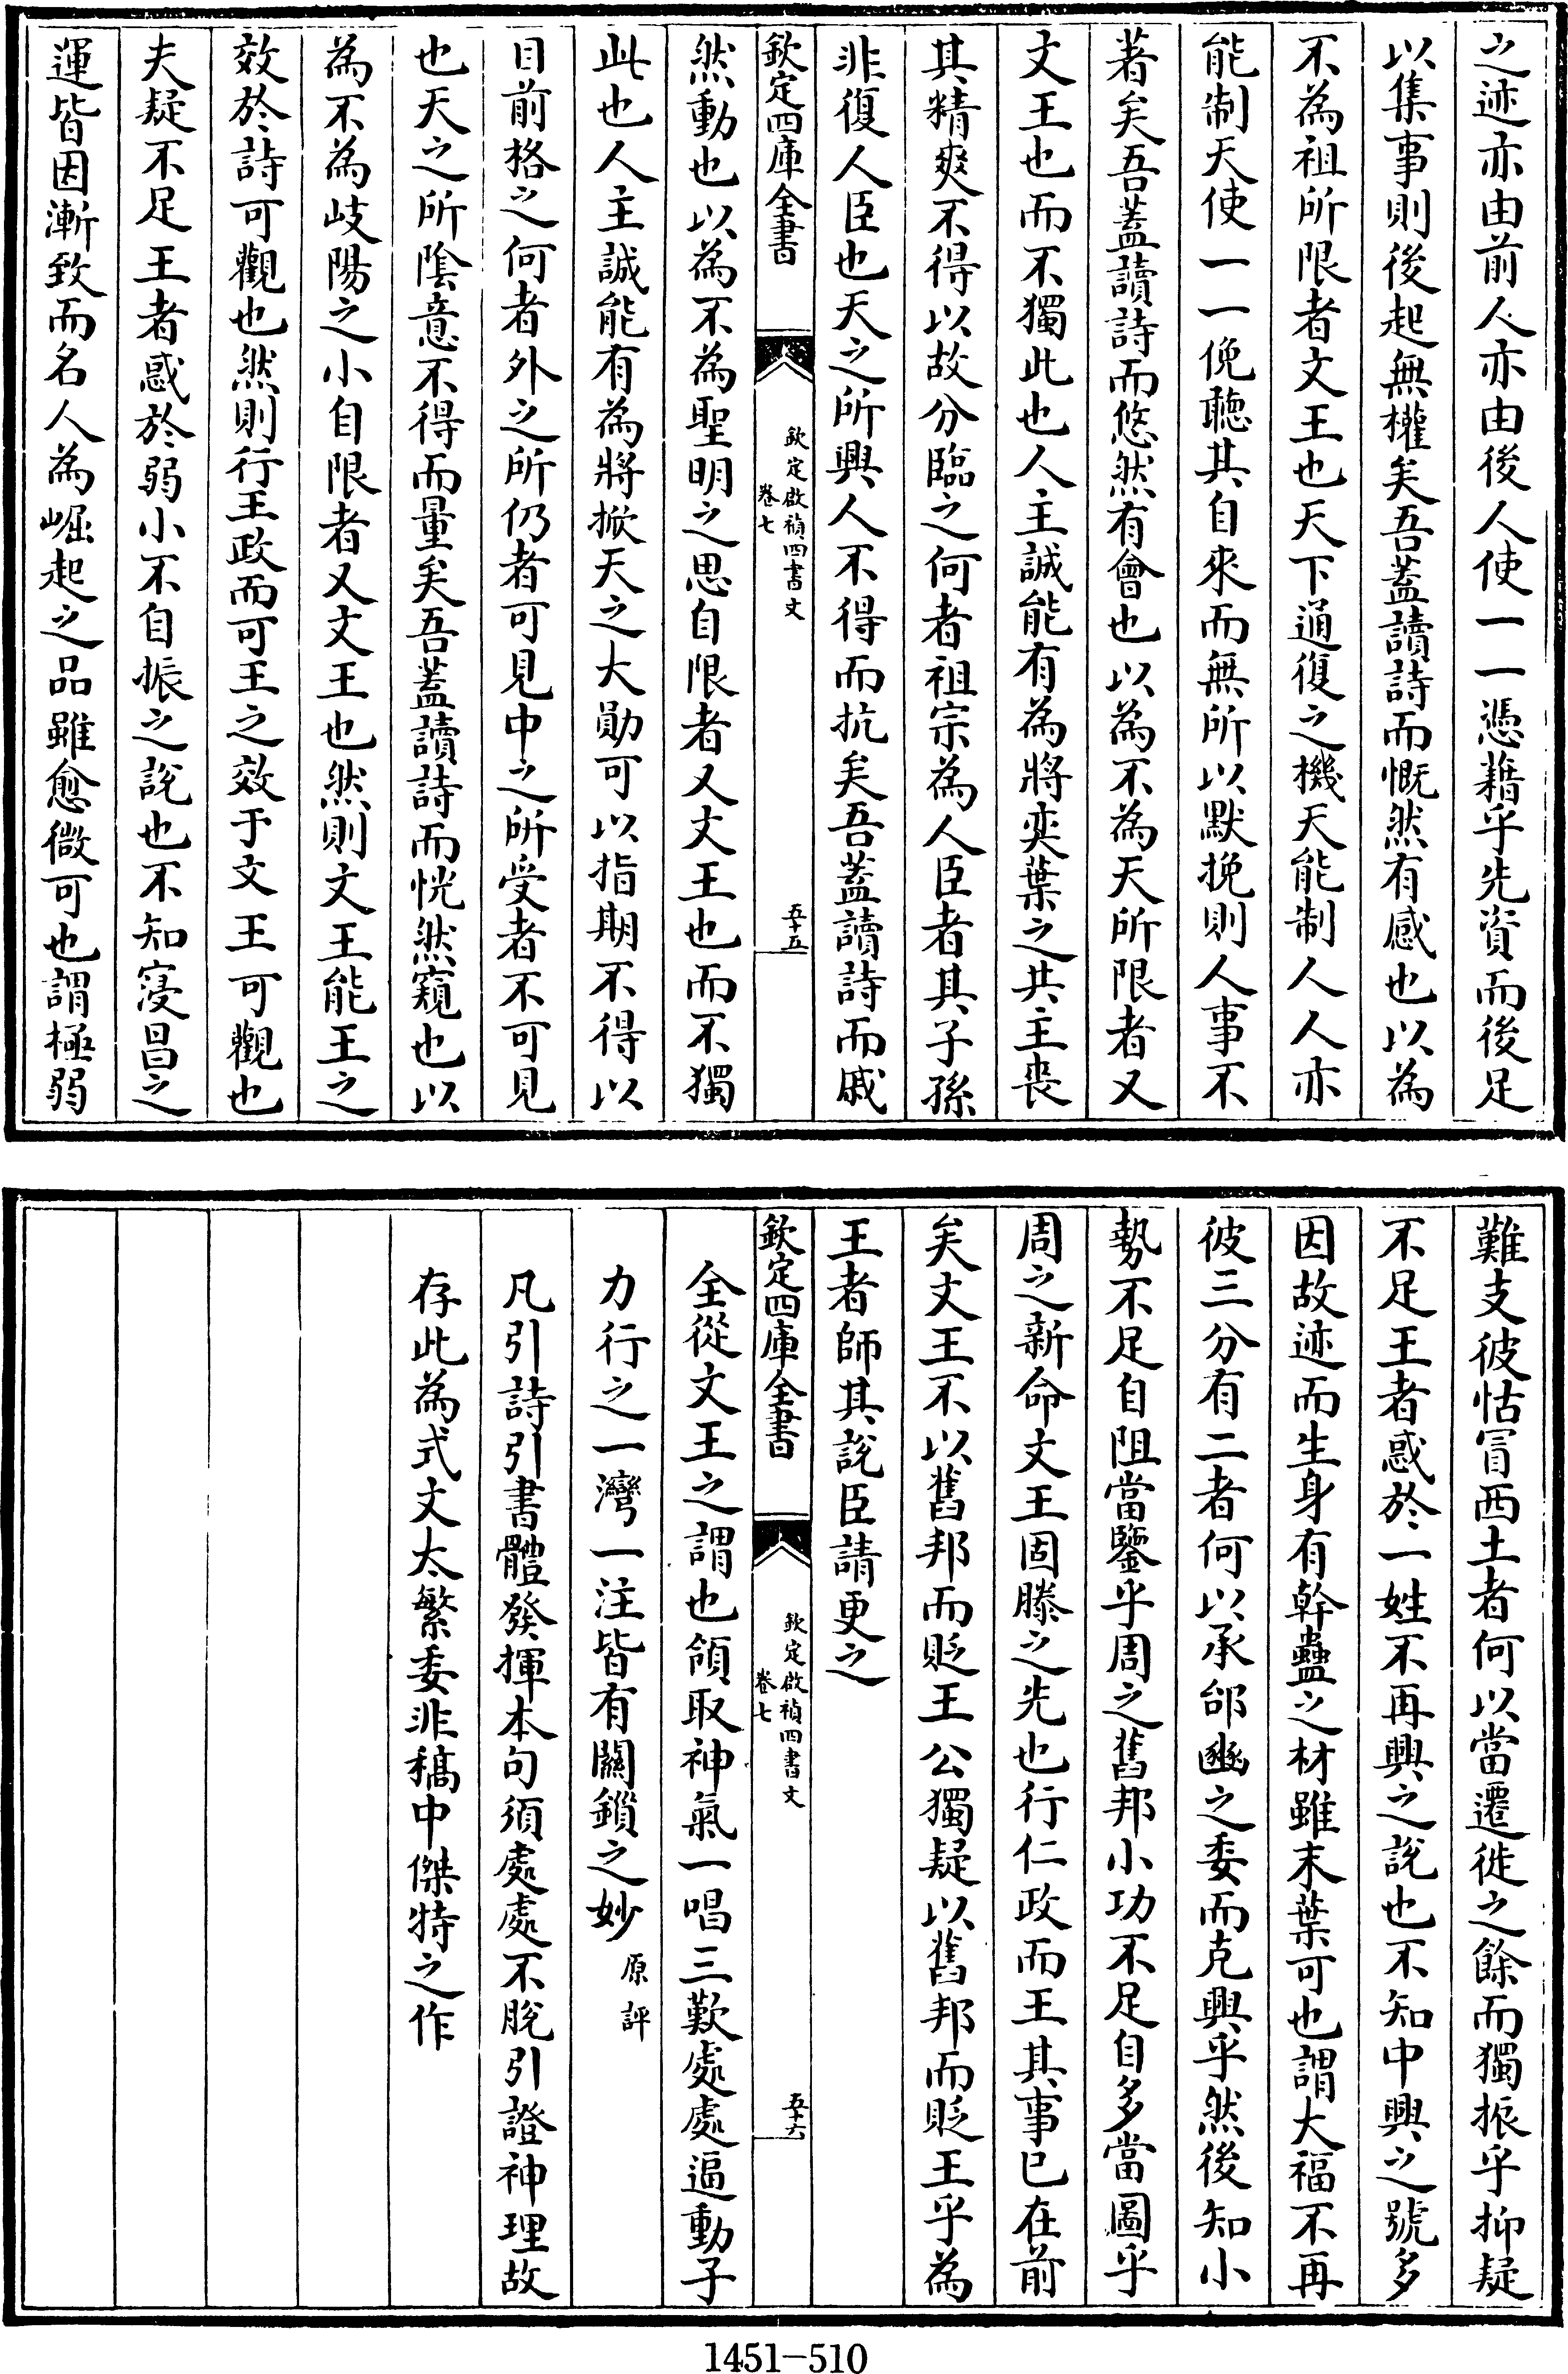 之迹亦由前人亦由後人使一一憑藉乎先資而後足
以集事則後起無權矣吾蓋讀詩而慨然有感也以為
不為祖所限者文王也天下通復之機天能制人人亦
能制天使一一俛聽其自來而無所以默挽則人事不
著矣吾蓋讀詩而悠然有會也以為不為天所限者又
文王也而不獨此也人主誠能有為將奕葉之共主喪
其精爽不得以故分臨之何者祖宗為人臣者其子孫
非復人臣也天之所興人不得而抗矣吾蓋讀詩而戚
欽定四庫全書
欽定啟禎四書文
卷七
五十五
然動也以為不為聖明之思自限者又文王也而不獨
此也人主誠能有為將掀天之大勛可以指期不得以
目前格之何者外之所仍者可見中之所受者不可見
也天之所陰意不得而量矣吾蓋讀詩而恍然窺也以
為不為岐陽之小自限者又文王也然則文王能王之
效於詩可觀也然則行王政而可王之效于文王可觀也
夫疑不足王者惑於弱小不自振之說也不知寖昌之
運皆因漸致而名人為崛起之品雖愈微可也謂極弱
難支彼怙冒西土者何以當遷徙之餘而獨振乎抑疑
不足王者惑於一姓不再興之說也不知中興之號多
因故迹而生身有幹蠱之材雖末葉可也謂大福不再
彼三分有二者何以承邰豳之委而克興乎然後知小
勢不足自阻當鑒乎周之舊邦小功不足自多當圖乎
周之新命文王固滕之先也行仁政而王其事已在前
矣文王不以舊邦而貶王公獨疑以舊邦而貶王乎為
王者師其說臣請更之
欽定四庫全書
欽定啟禎四書文
卷七
五十六
全從文王之謂也領取神氣一唱三歎處處逼動子
力行之一灣一注皆有關鎖之妙原評
凡引詩引書體發揮本句須處處不脫引證神理故
存此為式文太繁委非稿中傑特之作
1451-510